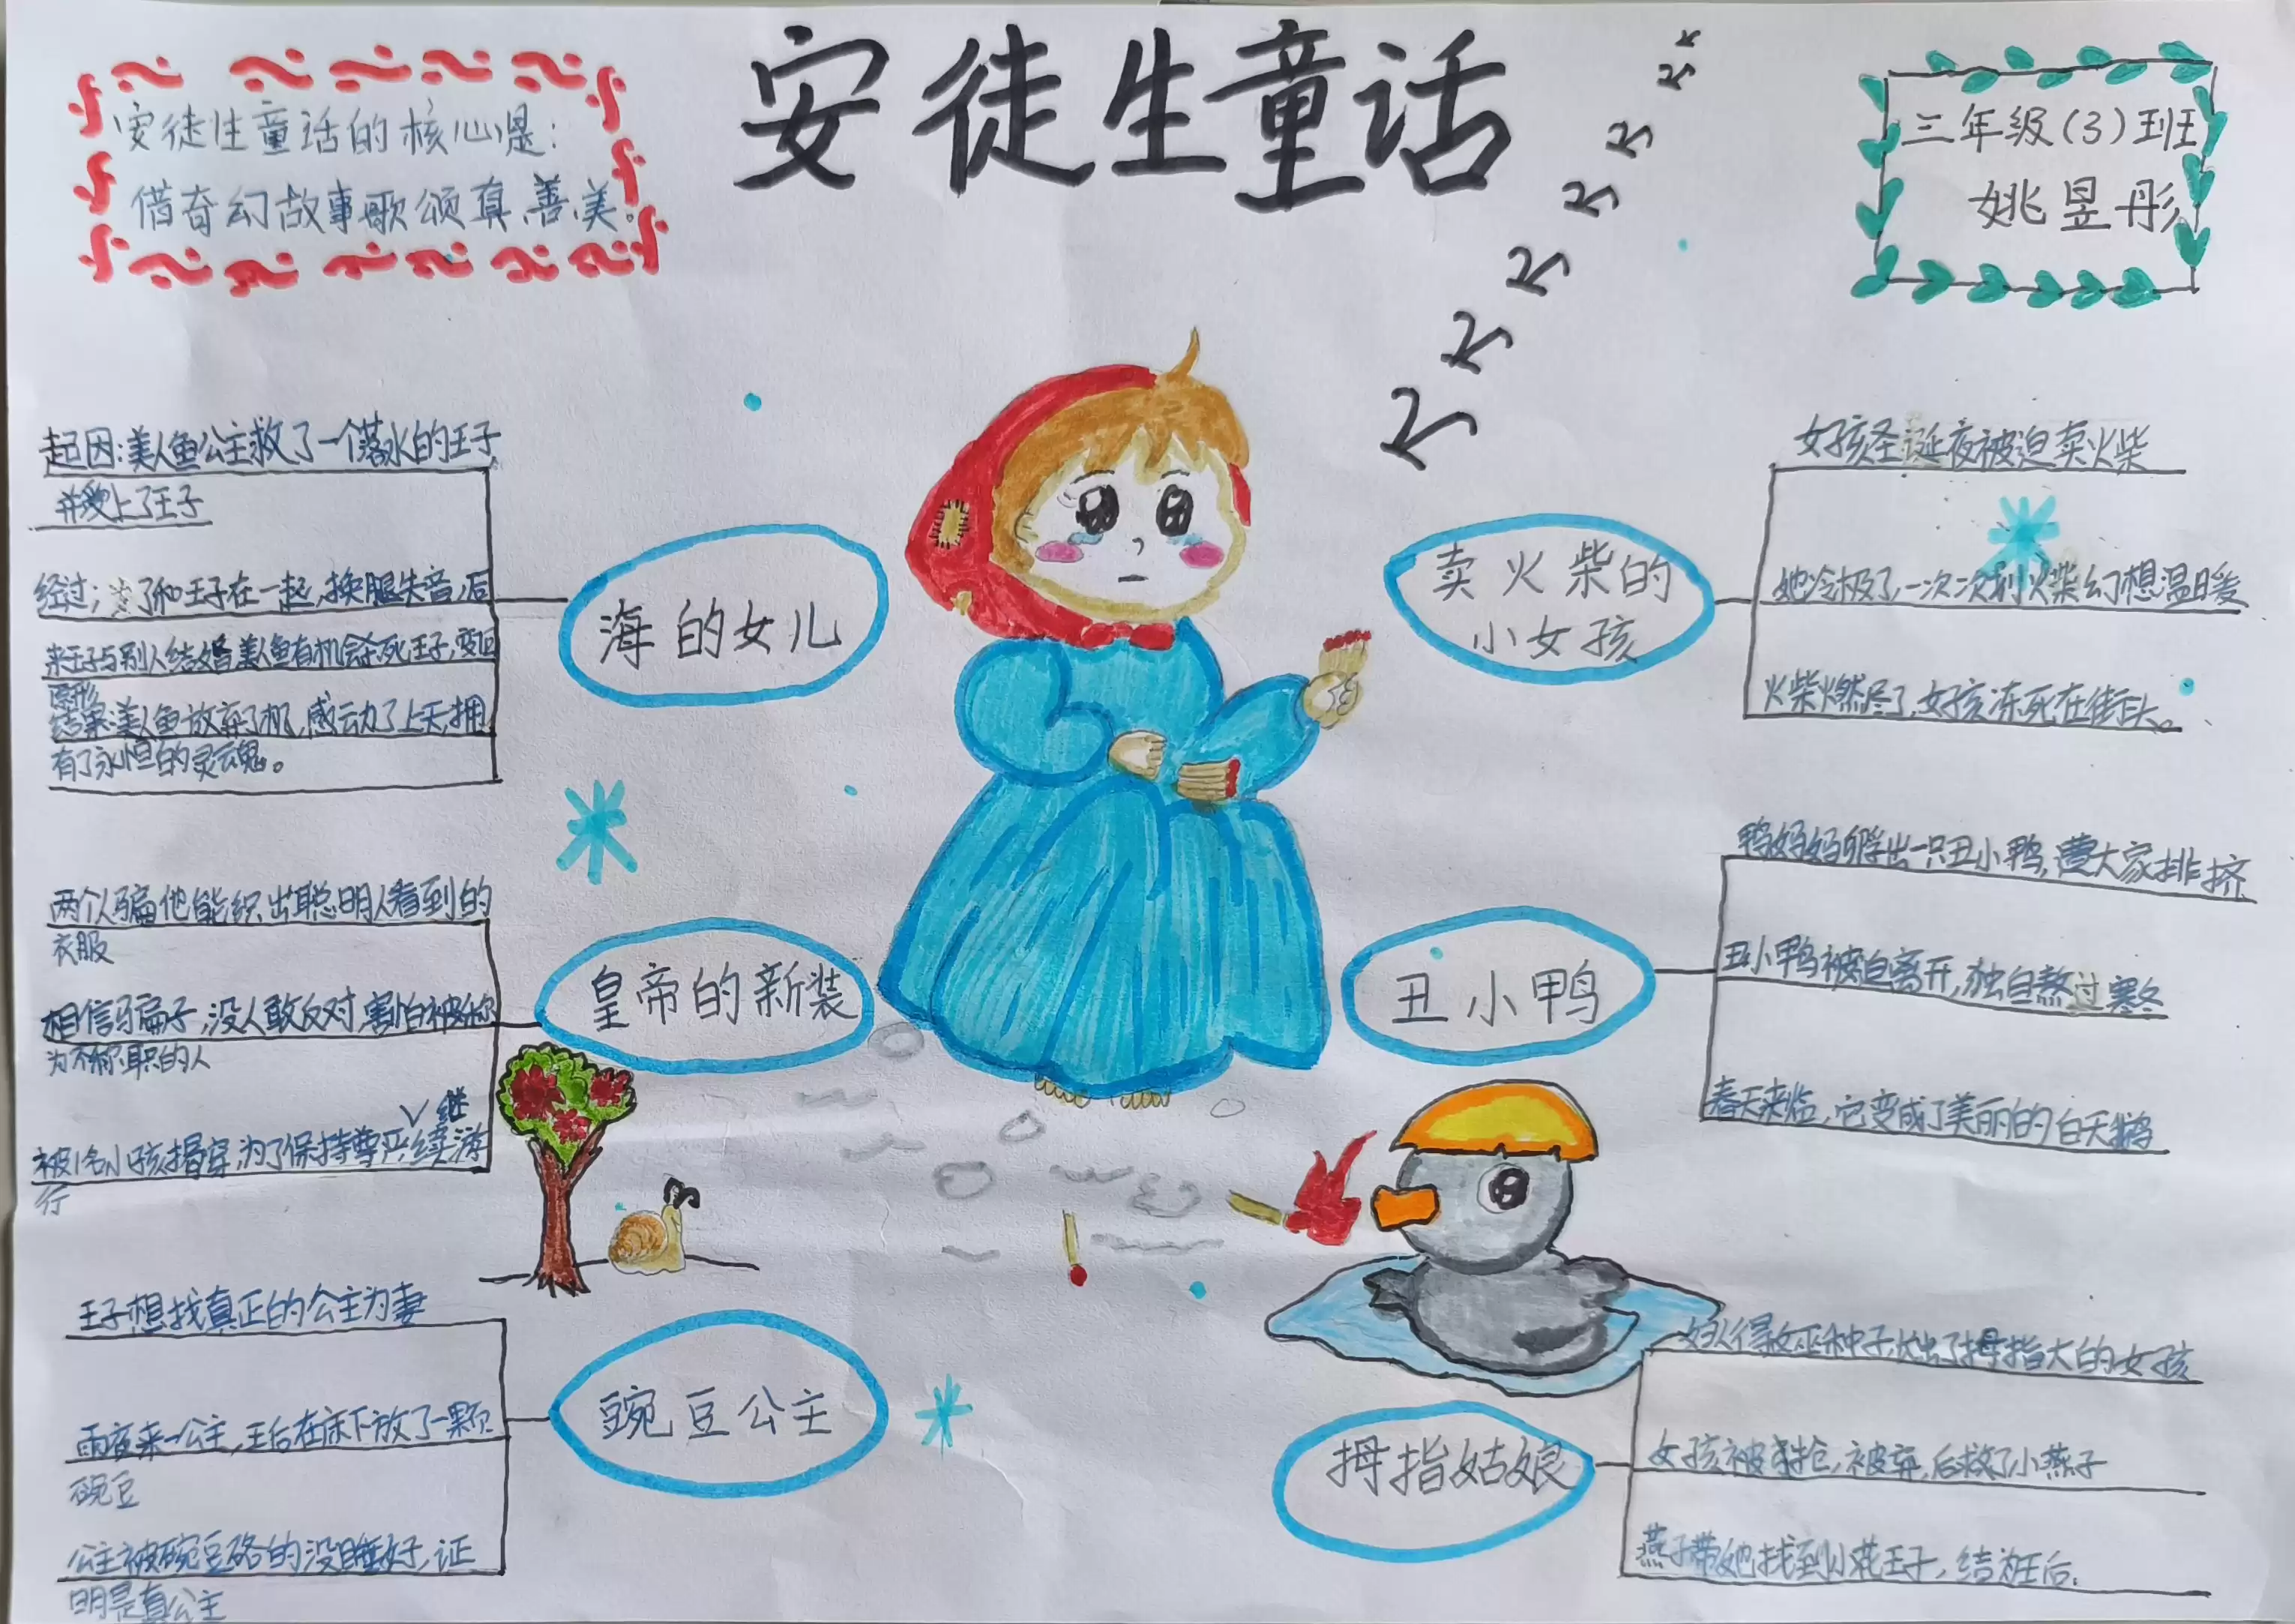 安徒生童话
安徒生童话的核心是：
借奇幻故事歌颂真、善、美。
三年级(3)班
姚昱彤
海的女儿
起因：美人鱼公主救了一个落水的王子，
并爱上了王子
经过：为了和王子在一起，换腿失音，后
来王子与别人结婚，美人鱼有机会杀死王子，变回
原形
结果：美人鱼放弃了机，感动了上天，拥
有了永恒的灵魂。
皇帝的新装
两个人骗他能织出聪明人看到的
衣服
相信骗子，没人敢反对，害怕被称
为不称职的人
被1名小孩揭穿，为了保持尊严继续游
行
豌豆公主
王子想找真正的公主为妻
雨夜来一公主，王后在床下放了一颗
豌豆
公主被豌豆硌的没睡好，证
明是真公主
卖火柴的
小女孩
女孩圣诞夜被迫卖火柴
她冷极了，一次次划火柴幻想温暖
火柴燃尽了，女孩冻死在街头。
丑小鸭
鸭妈妈孵出一只丑小鸭，遭大家排挤
丑小鸭被迫离开，独自熬过寒冬
春天来临，它变成了美丽的白天鹅
拇指姑娘
妇人得女巫种子，出了拇指大的女孩
女孩被抢，被弃，后救了小燕子
燕子带她找到小花王子，结为王后.